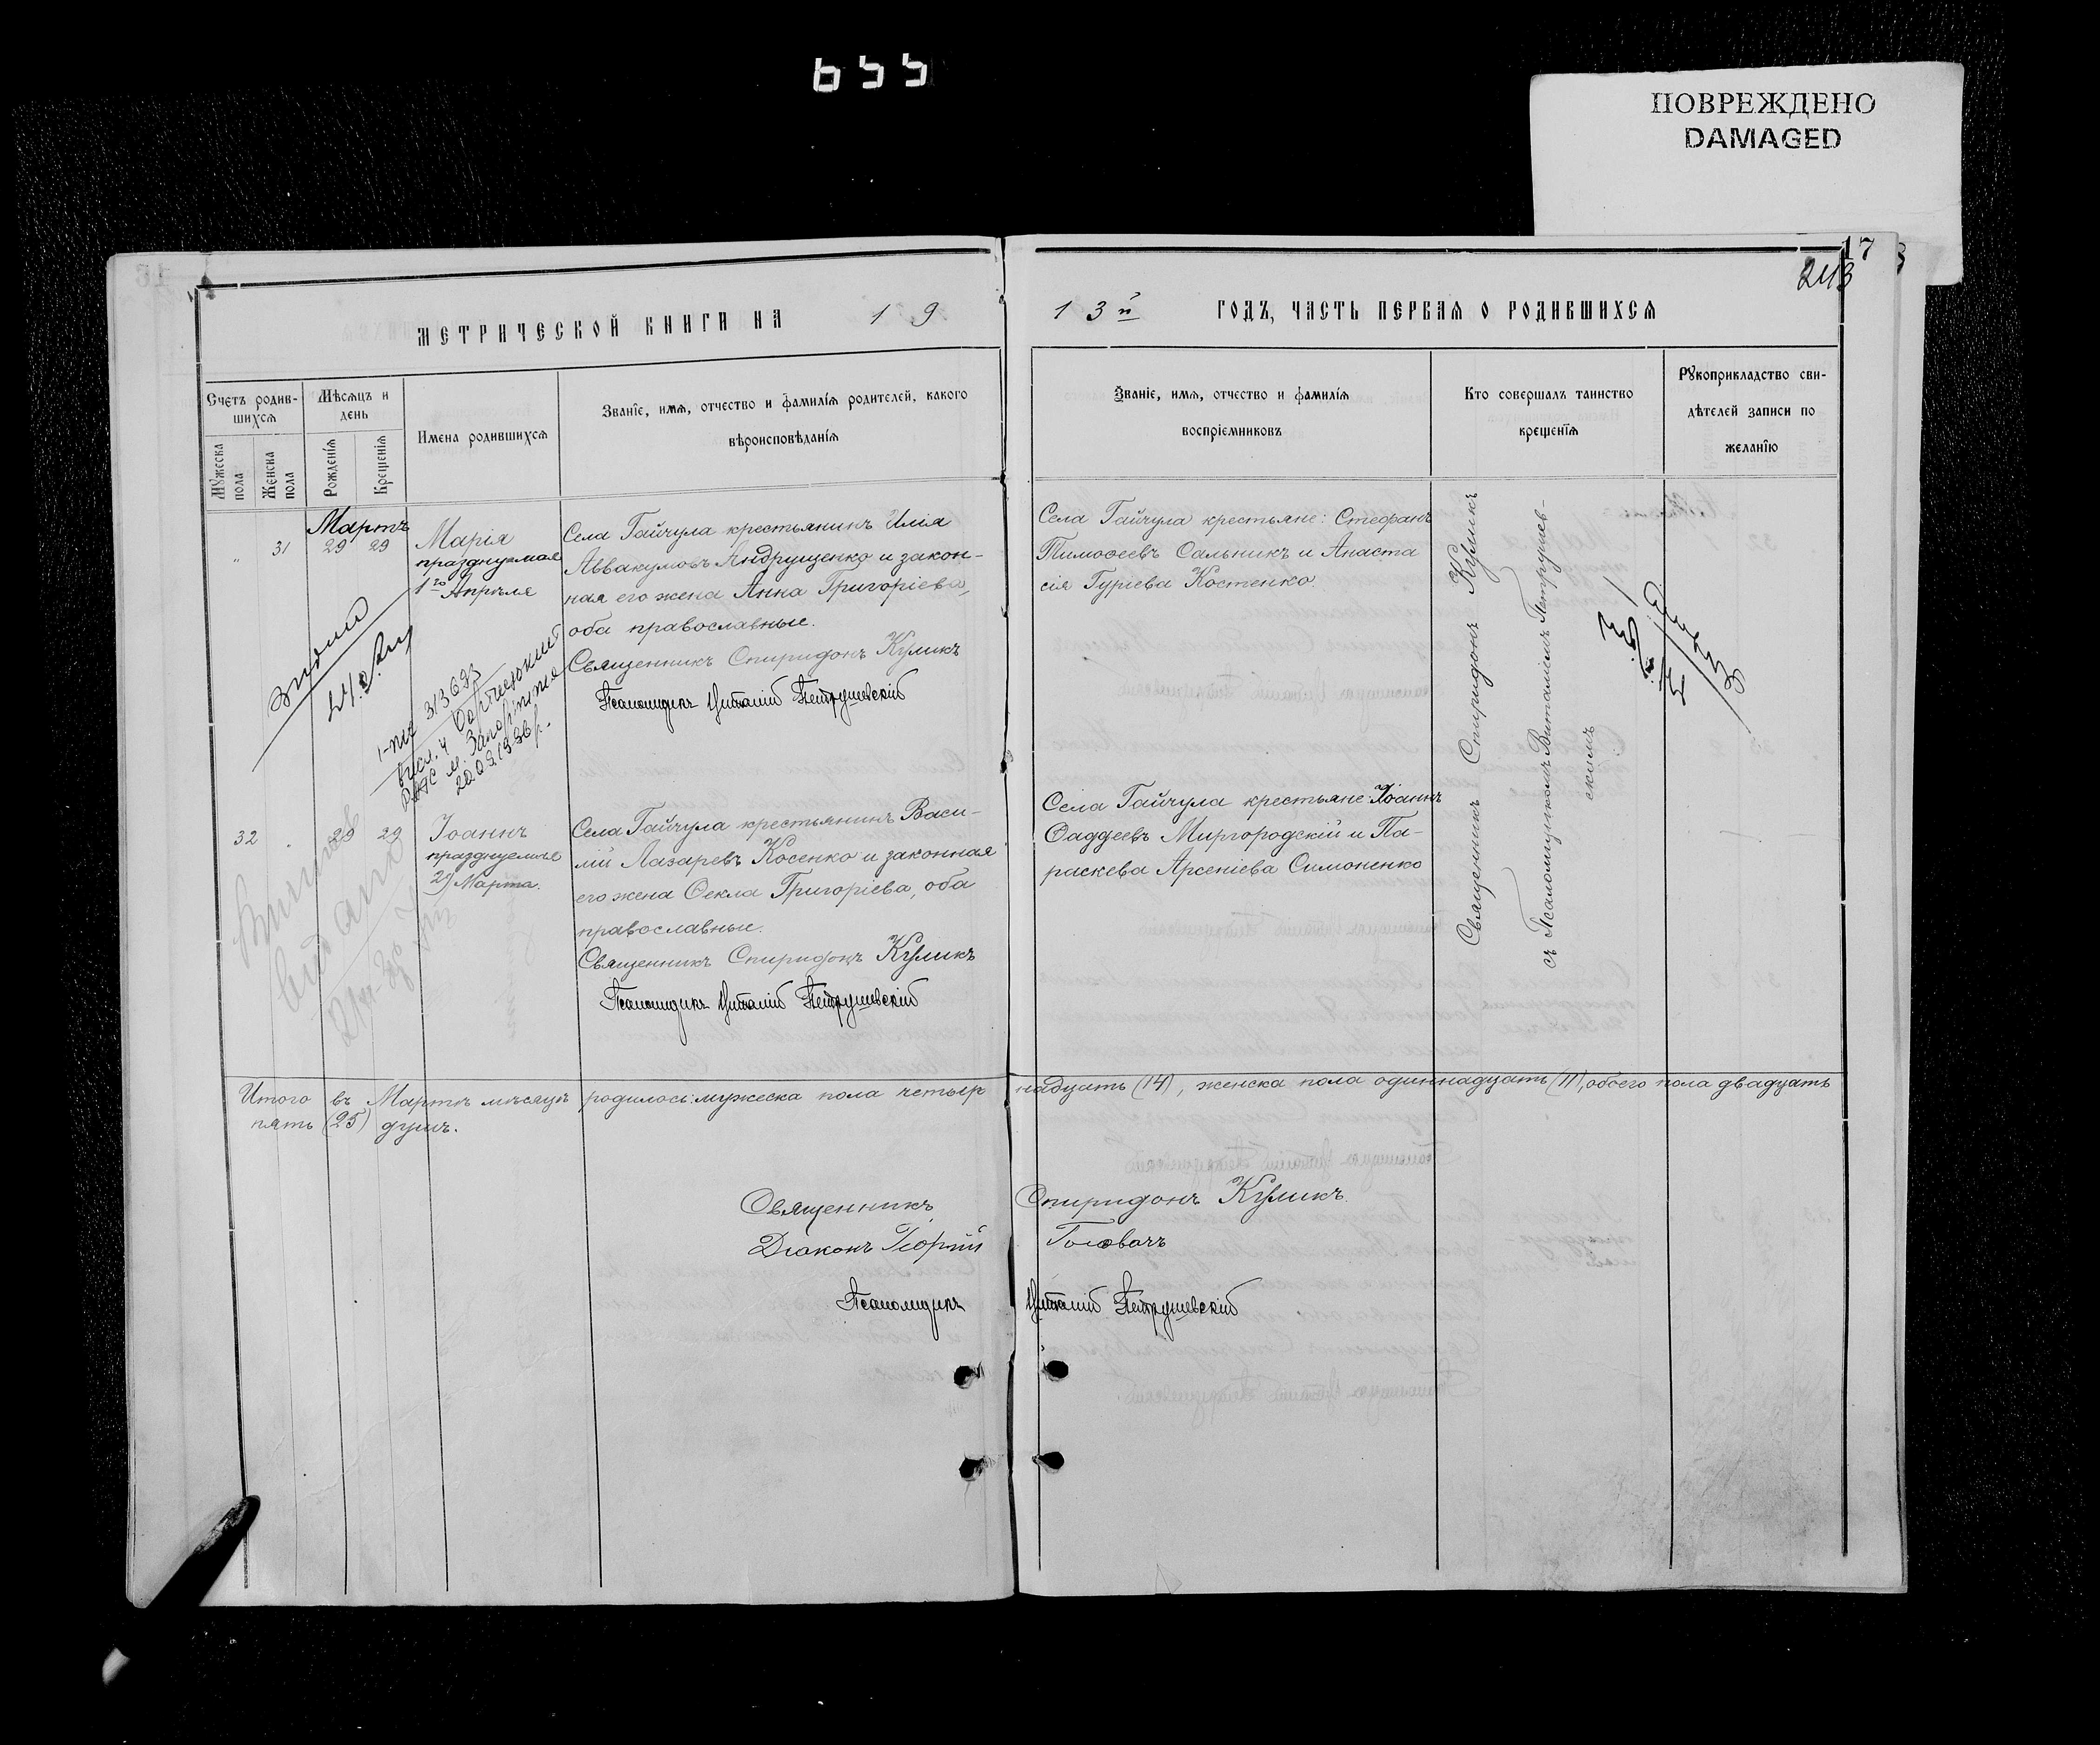 655
ПОВРЕЖДЕНО
DAMAGED
17
243
МЕТРИЧЕСКОЙ КНИГИ НА 19
13й ГОДЪ, ЧАСТЬ ПЕРВАЯ О РОДИВШИХСЯ
Счетъ родив-
шихся
Мѣсяцъ и
день
Имена родившихся
Званіе, имя, отчество и фамилія родителей, какого
вѣроисповѣданія
Мужеска
пола
Женска
пола
Рожденія
Крещенія
Званіе, имя, отчество и фамилія
воспріемниковъ
Кто совершалъ таинство
крещенія
Рукоприкладство сви-
дѣтелей записи по
желанію
Мартъ
" 31 29 29
Марія
празднуемая
1го Апрѣля
Села Гайчула крестьянинъ Илія
Аввакумовъ Андрущенко и закон-
ная его жена Анна Григоріева,
оба православные.
Священникъ Спиридонъ Куликъ
Псаломщикъ Виталій Петрушевскій
Села Гайчула крестьяне: Стефанъ
Тимоѳеевъ Сальникъ и Анаста
сія Гуріева Костенко
Священникъ Спиридонъ Куликъ
съ Псаломщикомъ Виталіемъ Петрушев-
скимъ
313623
м. Запоріжжя
32 29 29
Іоаннъ
празднуемый
29 Марта.
Села Гайчула крестьянинъ Васи-
лій Лазаревъ Косенко и законная
его жена Ѳекла Григоріева, оба
православные.
Священникъ Спиридонъ Куликъ
Псаломщикъ Виталій Петрушевскій
Села Гайчула крестьяне: Іоаннъ
Ѳаддеевъ Миргородскій и Па-
раскева Арсеніева Симоненко
Итого въ Мартѣ мѣсяцѣ родилось: мужеска пола четыр надцать (14), женска пола одиннадцать (11), обоего пола двадцать
пять (25) душъ.
Священникъ Спиридонъ Куликъ.
Діаконъ Георгій Головачъ
Псаломщикъ Виталій Петрушевскій